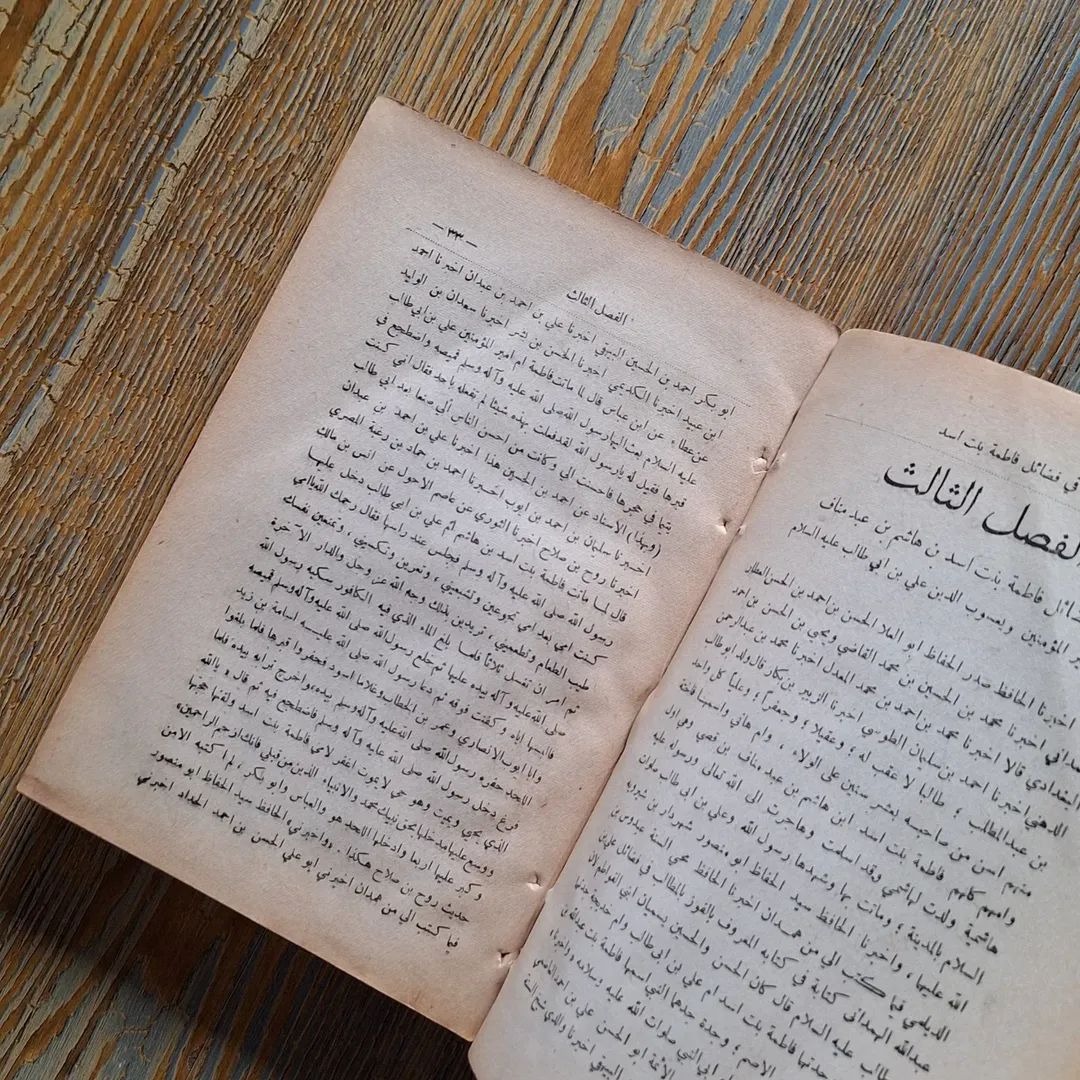 في فضائل فاطمة بنت اسد
لفصل الثالث
ضائل فاطمة بنت اسد بن هاشم بن عبد مناف
ير المؤمنين ويعسوب الدين علي بن ابي طالب عليه السلام
اخبرنا الحافظ صدر الحفاظ ابو العلا الحسن بن احمد بن الحسن العطار
مداني اخبرنا محمد بن الحسين بن محمد القاضي ويحيى بن الحسن بن احمد
البغدادي قالا اخبرنا محمد بن احمد بن محمد المعدل اخبرنا محمد بن عبدالرحمن
الذهبي اخبرنا احمد بن سليمان الطوسي اخبرنا الزبير بن بكار قال ولد ابو طالب
بن عبد المطلب ؛ طالبا لا عقب له ؛ وعقيلا ؛ وجعفراً ؛ وعلياً كل واحد
منهم اسن من صاحبه بعشر سنين على الولاء . وام هاني واسمها فاختة
وامهم كلهم فاطمة بنت اسد ابن هاشم بن عبد مناف بن قصي وهي اول
هاشمية ولدت لهاشمي وقد اسلمت وهاجرت الى الله تعالى ورسوله عليه
السلام بالمدينة ؛ وماتت بها وشهدها رسول الله وعلي بن ابي طالب صلوات
الله عليها ، واخبرنا الحافظ سيد الحفاظ ابو منصور شهردار بن شيرويه
الديلمي فيما كتب الي من همدان اخبرنا الحافظ محيي السنة عبدوس بن
عبدالله الهمداني كتابة في كتابه المعروف بالفوز بالمطالب في فضائل علي بن
طالب عليه السلام قال كان الحسن والحسين يسميان ابني الفواطم لان
جدتها فاطمة بنت اسد ام علي بن ابي طالب وام خديجة جدتها
الاصم ؛ وجدة جدها النبي اسمها فاطمة بنت عبدالله بن
ابي النبي صلوات الله عليه وسلامه واخبرنا
الأئمة ابو الحسن علي بن احمد العاصمي
البيهقي اخبرنا والدي شيخ السنة
- ٣٣ -
الفصل الثالث
ابو بكر احمد بن الحسين البيهقي اخبرنا علي بن احمد بن عبدان اخبرنا احمد
ابن عبيد اخبرنا الكديمي اخبرنا الحسن بن بشر اخبرنا سعدان بن الوليد
عن عطاء عن ابن عباس قال لما ماتت فاطمة ام امير المؤمنين علي بن ابي طالب
عليه السلام بعث اليها رسول الله صلى الله عليه وآله وسلم قميصه واضطجع في
قبرها فقيل له يارسول الله لقد فعلت بهذه شيئا لم تفعله باحد فقال اني كنت
يتيما في حجرها فاحسنت الي وكانت من احسن الناس الي صنعا بعد ابي طالب
(وبهذا) الاسناد عن احمد بن الحسين هذا اخبرنا علي بن احمد بن عبدان
اخبرنا سليمان بن احمد بن ايوب اخبرنا احمد بن حماد بن زغبة المصري
اخبرنا روح بن صلاح اخبرنا الثوري عن عاصم الاحول عن انس بن مالك
قال لما ماتت فاطمة بنت اسد بن هاشم ام علي بن ابي طالب دخل عليها
رسول الله صلى الله عليه وآله وسلم فجلس عند راسها فقال رحمك الله ياامي
كنت امي بعد امي تجوعين وتشبعيني ، وتعرين وتكسيني ، وتمنعين نفسك
طيب الطعام وتطعميني ، تريدين بذلك وجه الله عز وجل والدار الآخرة
ثم امر ان تغسل ثلاثاً فلما بلغ الماء الذي فيه الكافور سكبه رسول الله
صلى الله عليه وآله بيده عليها ثم خلع رسول الله صلى الله عليه وآله وسلم قميصه
فالبسها اياه وكفنت فوقه ثم دعا رسول الله صلى الله عليه اسامة بن زيد
وابا ايوب الانصاري وعمر بن الخطاب وغلاما اسود فحفروا قبرها فلما بلغوا
اللحد حفره رسول الله صلى الله عليه وآله وسلم بيده واخرج ترابه بيده فلما
فرغ دخل رسول الله صلى الله عليه وآله وسلم فاضطجع فيه ثم قال ، ياالله
الذي يحيي ويميت وهو حي لا يموت اغفر لامي فاطمة بنت اسد ولقنها حجتها
ووسع عليها مدخلها بحق نبيك محمد والانبياء الذين من قبلي فانك ارحم الراحمين
وكبر عليها اربعا وادخلها اللحد هو والعباس وابو بكر ، لم اكتبه الا من
حديث روح بن صلاح هكذا . واخبرني الحافظ سيد الحفاظ ابو منصور
فيما كتب الي من همدان اخبرني ابو علي الحسن بن احمد الحداد اخبرني